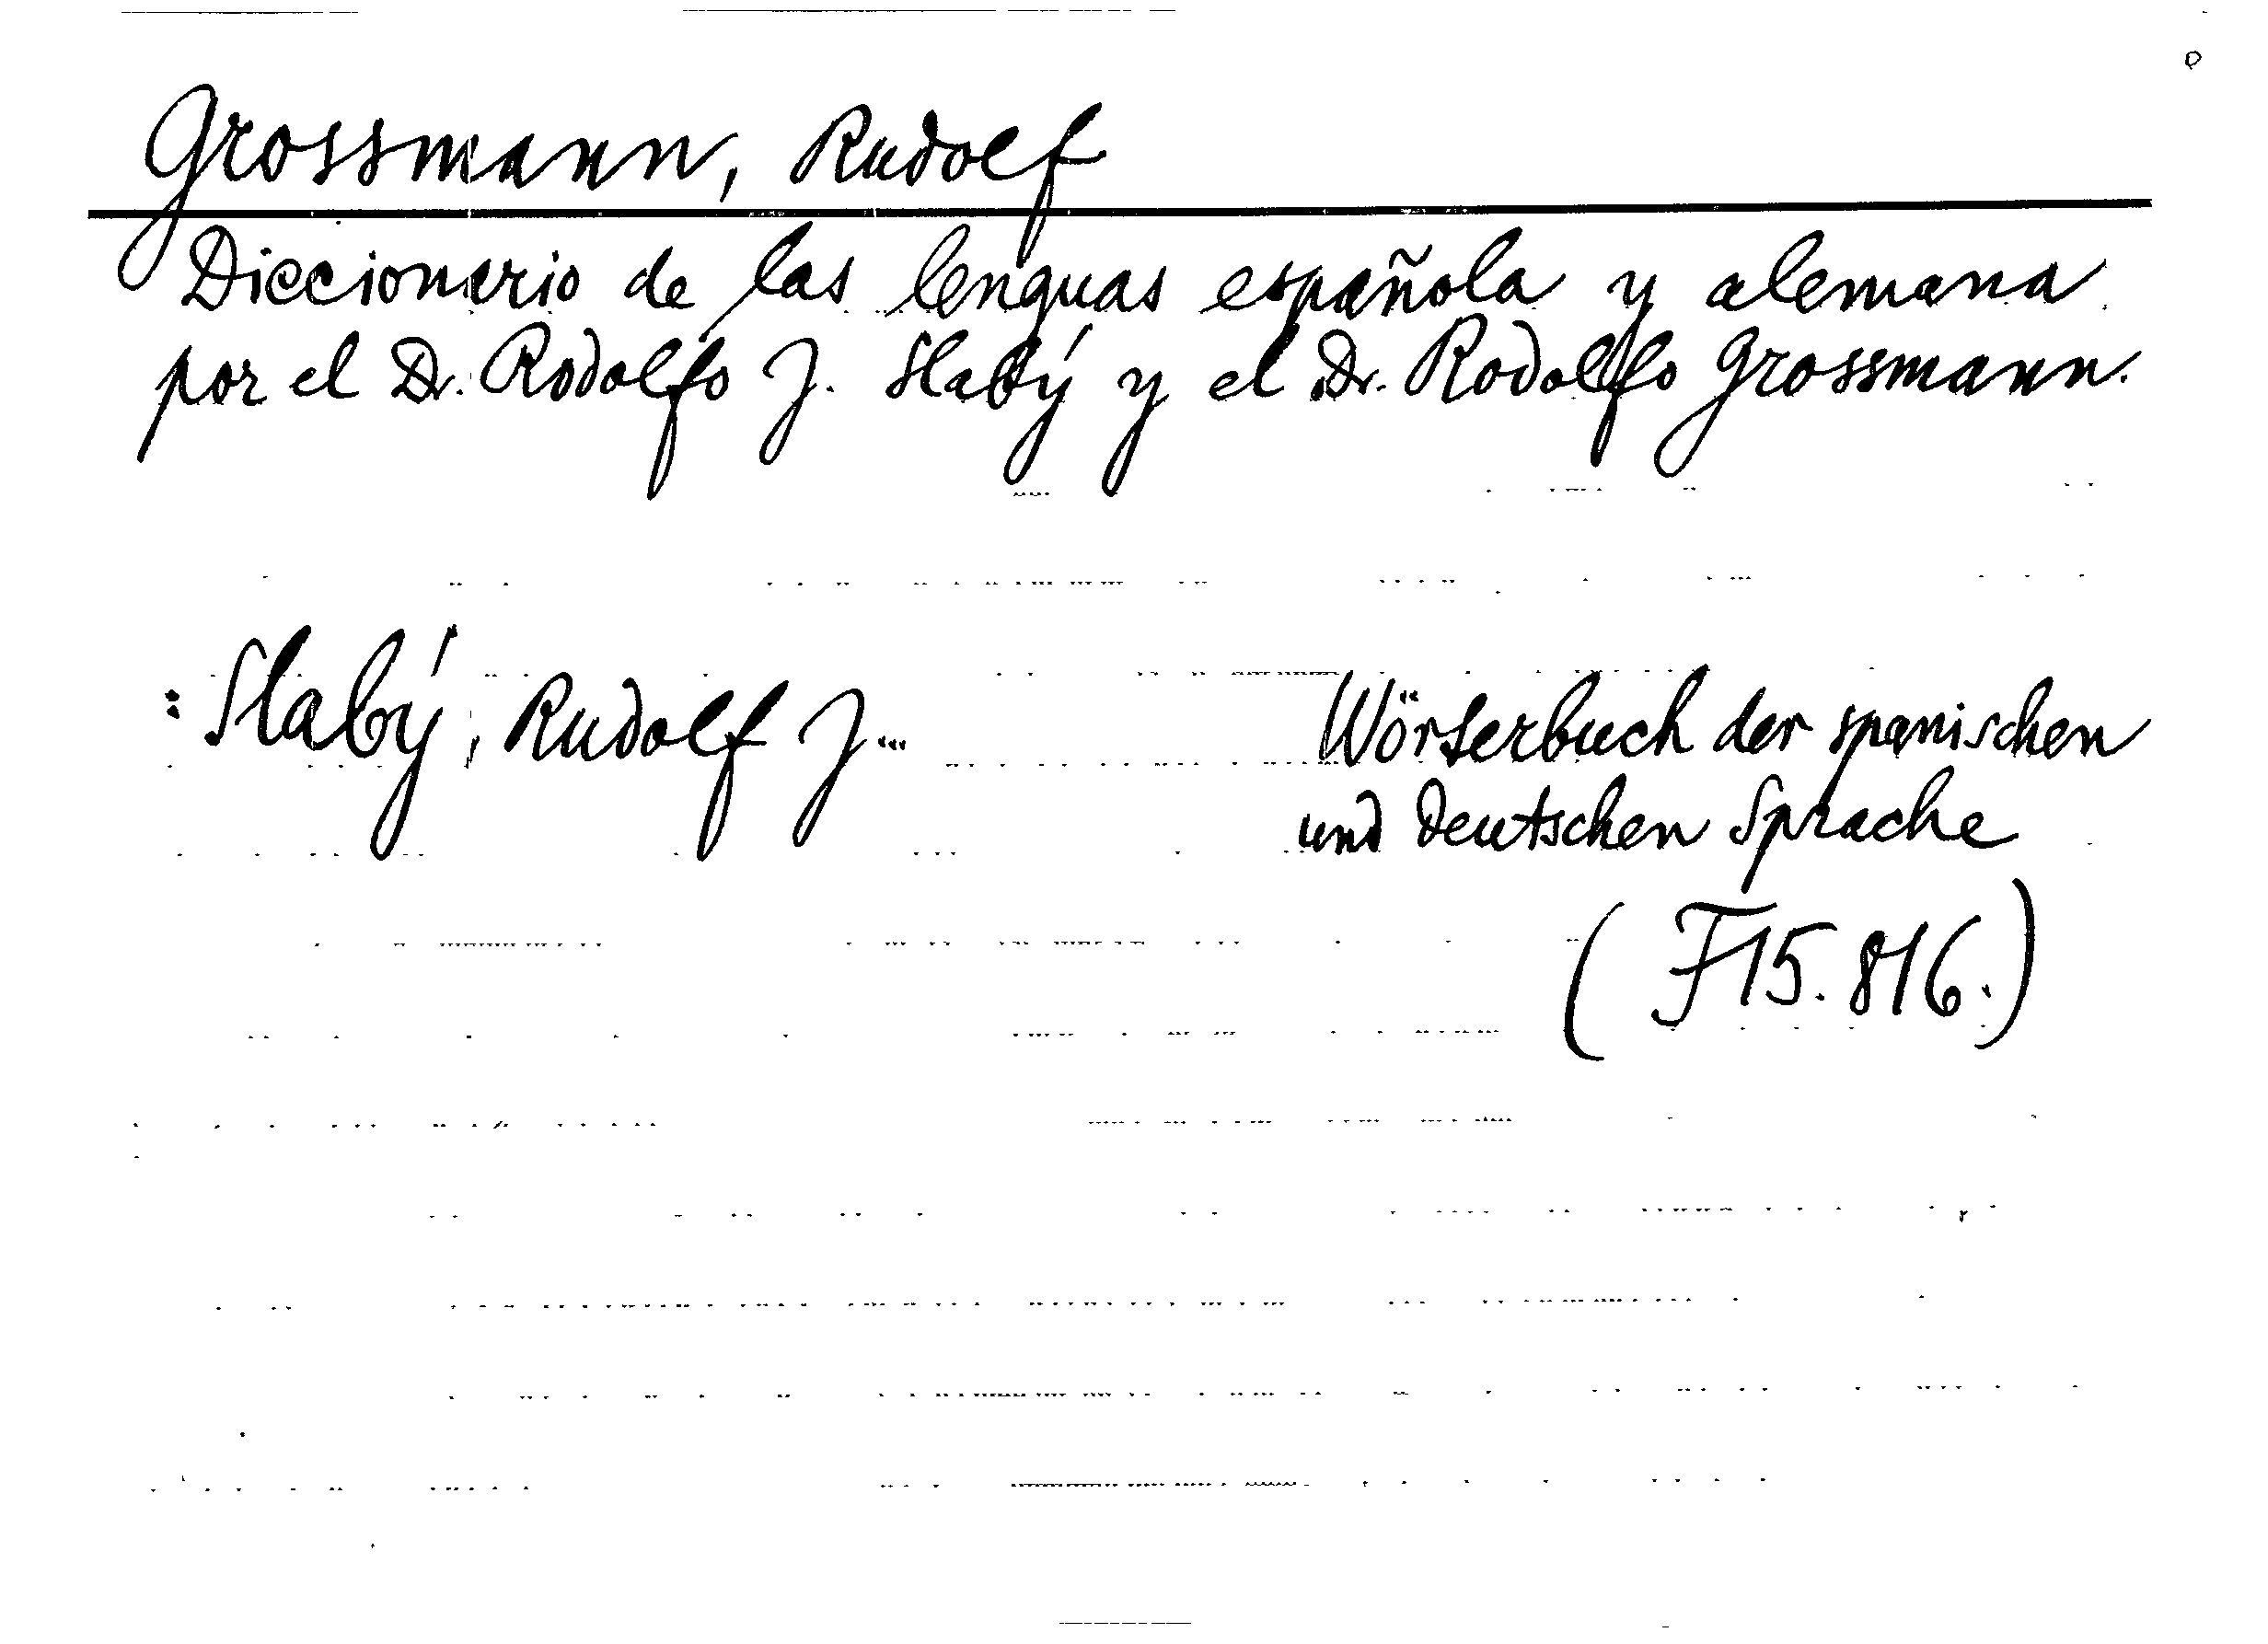 Grossmann, Rudolf
Diccionario de las lenguas española y alemana
por el Dr. Rodolfo J. Slabý y el Dr. Rodolfo Grossmann.
: Slabý, Rudolf J... Wörterbuch der spanischen
und deutschen Sprache
(F15.816.)